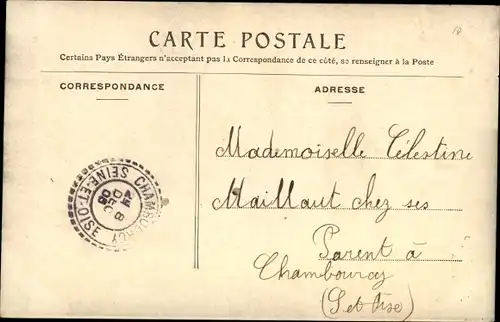 CARTE POSTALE
Certains Pays Étrangers n'acceptant pas la Correspondance de ce côté, se renseigner à la Poste
CORRESPONDANCE
ADRESSE
Mademoiselle Célestine
Maillaut chez ses
Parent à
Chambourcy
(S et Oise)
CHAMBOURCY
SEINE-ET-OISE
8
24
DEC